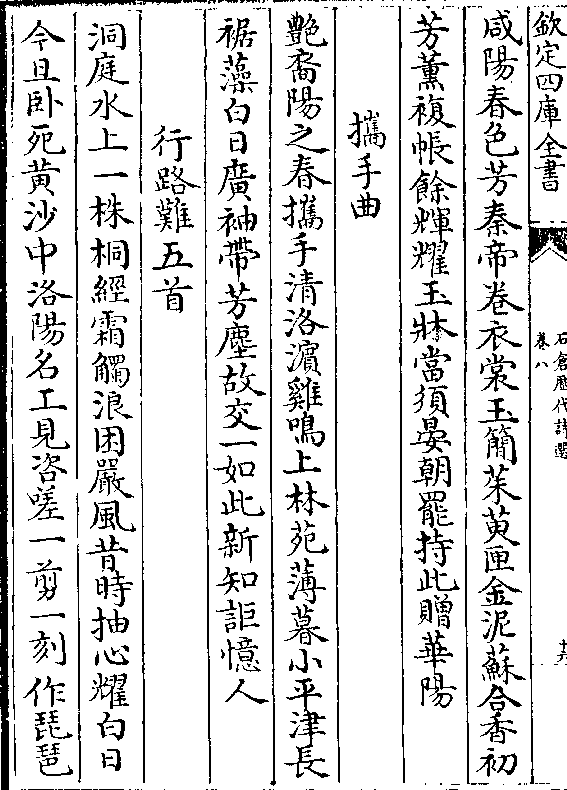 欽定四庫全書
石倉歷代詩選
卷八
十六
咸陽春色芳秦帝卷衣裳玉簡茱萸匣金泥蘇合香初
芳薰複帳餘輝耀玉牀當須晏朝罷持此贈華陽
攜手曲
艷裔陽之春攜手清洛濱雞鳴上林苑薄暮小平津長
裾藻白日廣袖帶芳塵故交一如此新知詎憶人
行路難五首
洞庭水上一株桐經霜觸浪困嚴風昔時抽心耀白日
今旦卧死黃沙中洛陽名工見咨嗟一剪一刻作琵琶